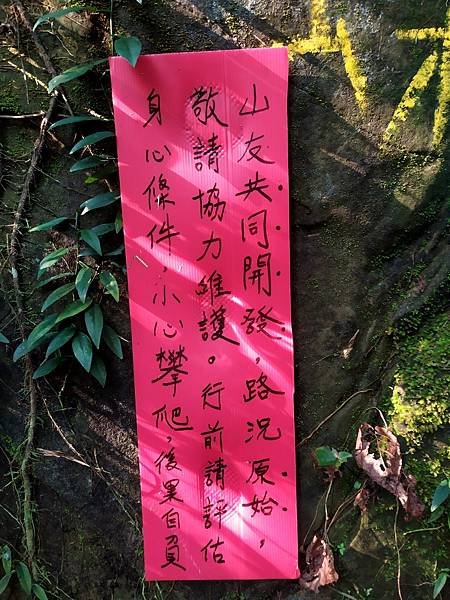 山友共同開發，路況原始，
敬請協力維護。行前請評估
身心條件，小心攀爬，後果自負